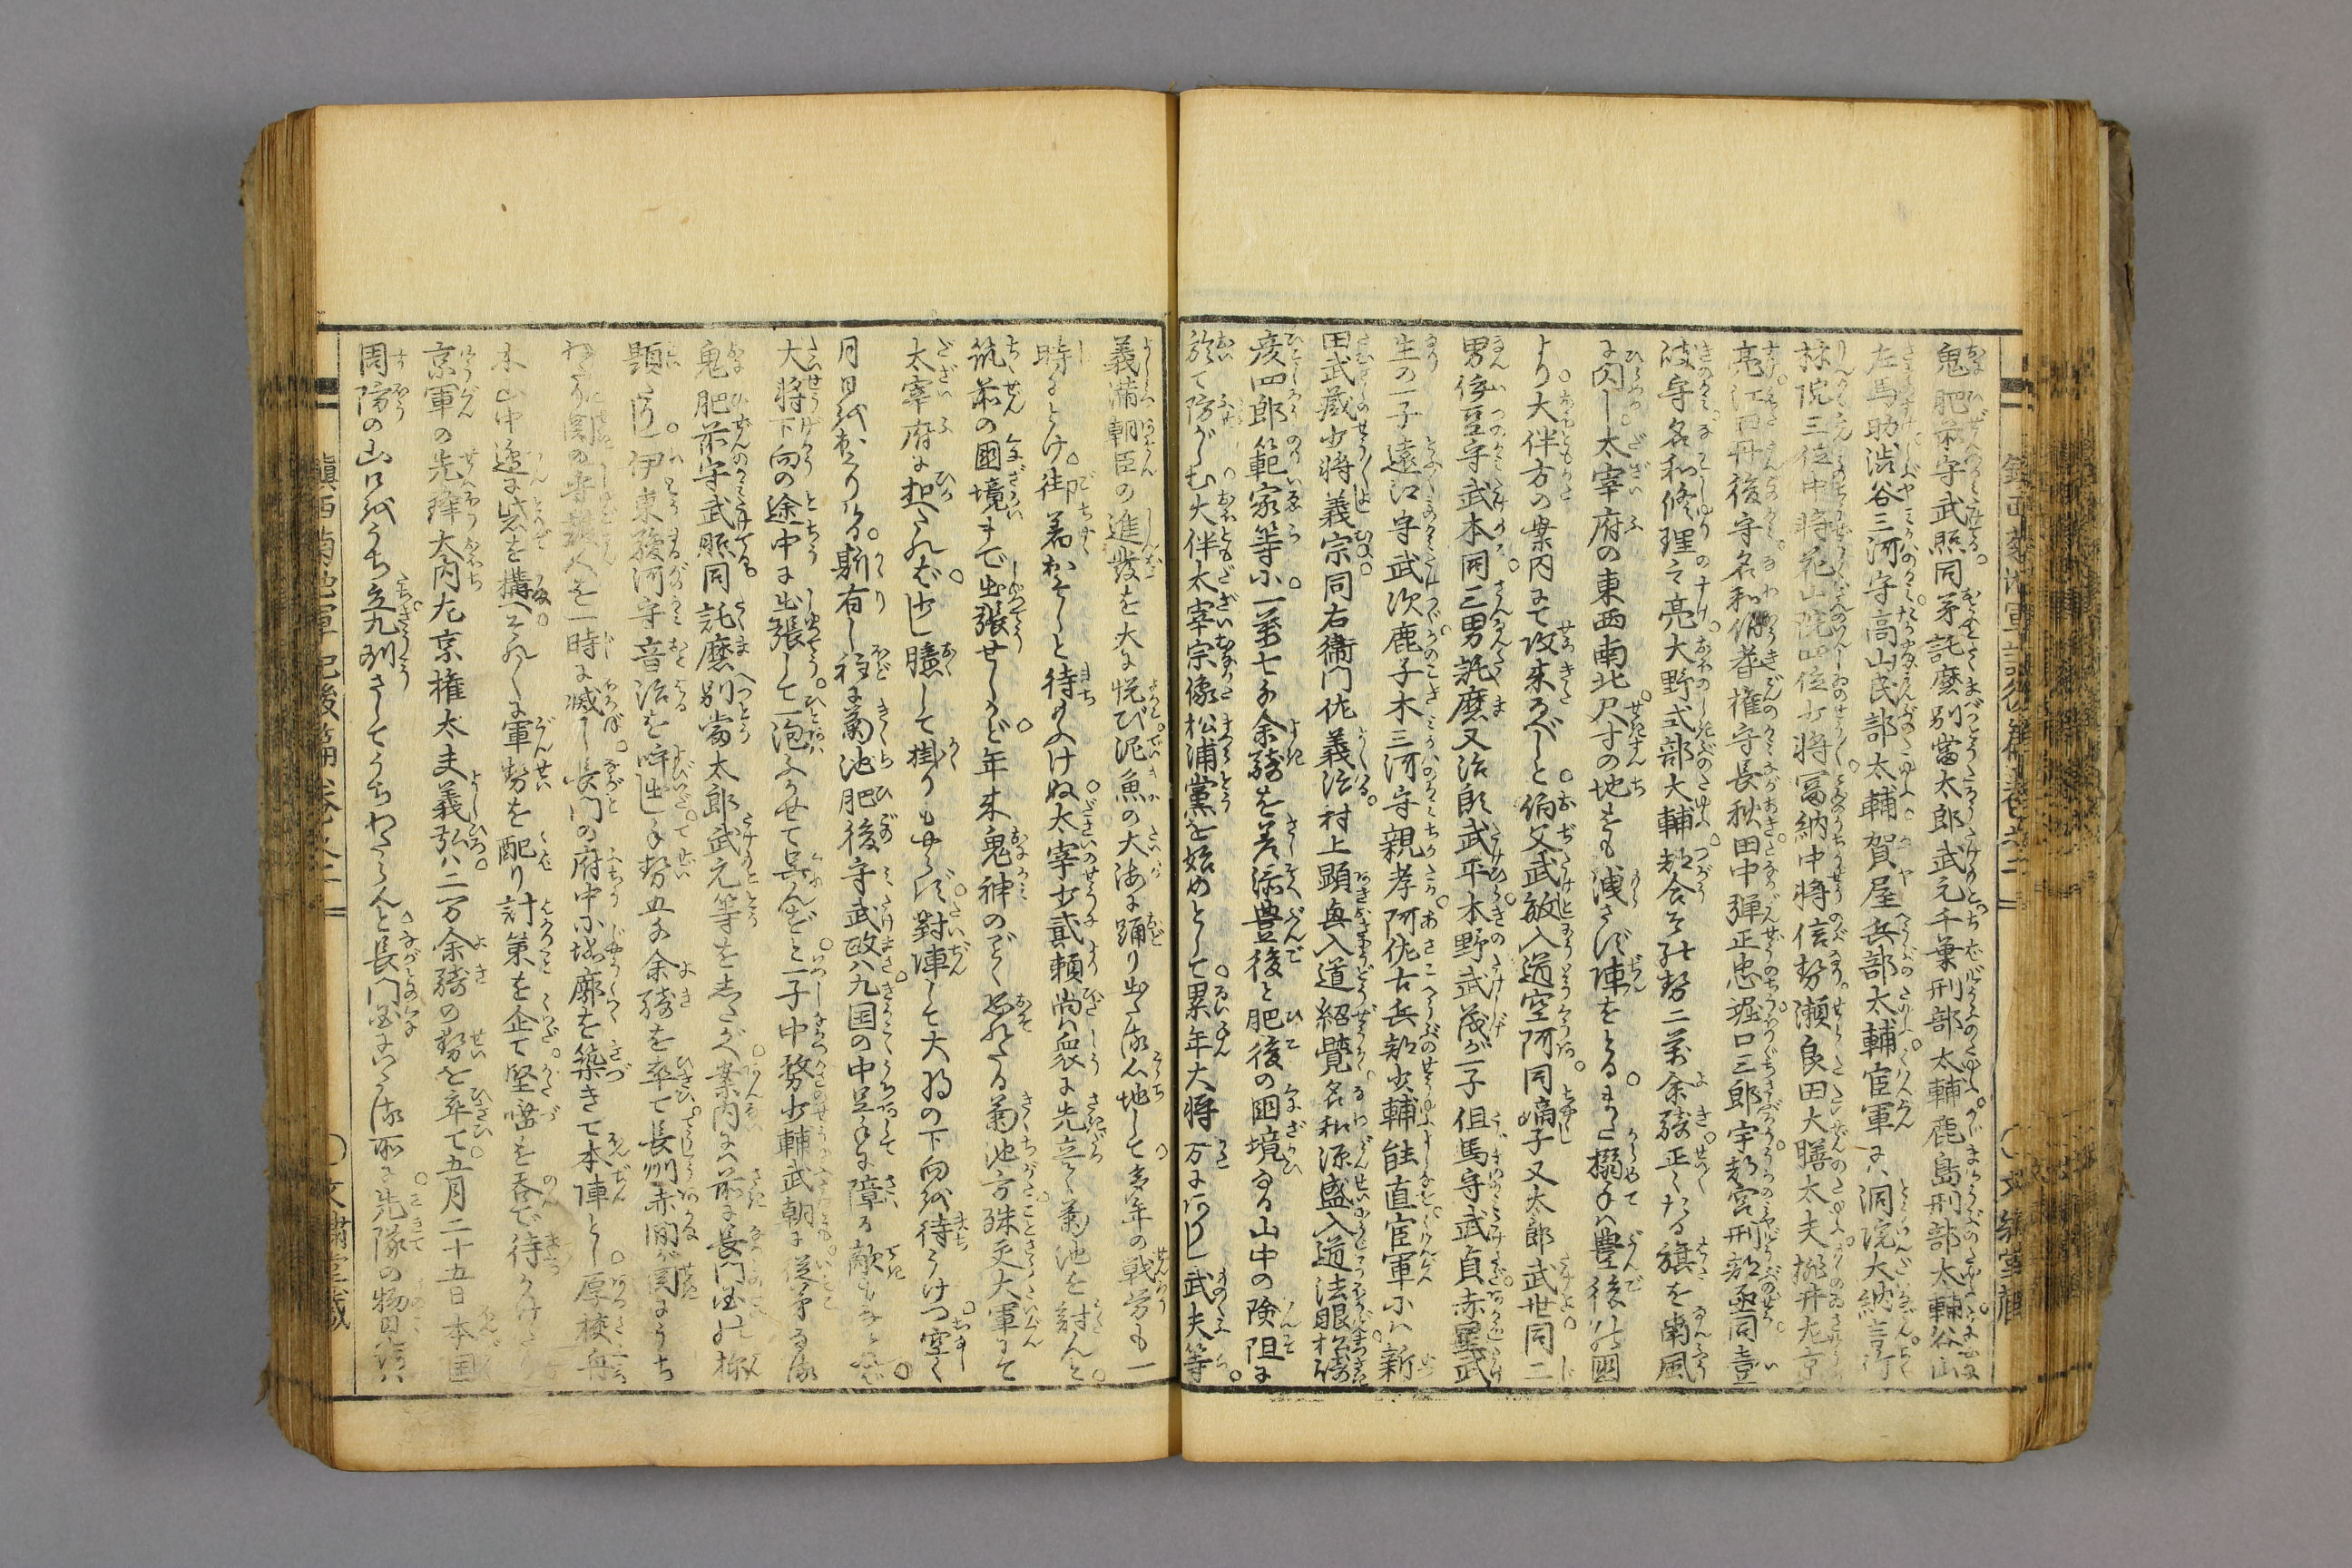 鬼肥前守武照同弟託麿別當太郎武元千葉刑部太輔鹿島刑部太輔谷山
左馬助渋谷三河守高山民部太輔賀屋兵部太輔宦軍には洞院大納言
林院三位中将花山院四位少将冨納中将信勢瀬良田大膳太夫桃井左京
亮江田丹後守名和伯耆権守長秋田中弾正忠堀口三郎宇都宮刑部丞同壹
岐守名和修理之亮大野式部大輔都合其勢二萬余騎正々たる旗を南風
に閃し太宰府の東西南北尺寸の地をも洩さず陣をとるまた搦手は豊後の國
より大伴方の案内にて攻来るべしと伯父武敏入道空阿同嫡子又太郎武世同二
男伊豆守武本同三男託麿又治郎武平木野武茂が一子但馬守武貞赤星武
生の一子遠江守武次鹿子木三河守親孝阿佐古兵部少輔能直宦軍には新
田武蔵少将義宗同右衛門佐義治村上顕興入道紹覺名和源盛入道法眼松崎
彦四郎範家等に一萬七千余騎を差添豊後と肥後の囯境なる山中の険阻に
於て防がしむ大伴太宰宗像松浦黨を始めとして累年大将方に
義満朝臣の進發を大に悦び泥魚の大海に踊り出たる心地して多年の戦労も一
時にとけ御着おそしと待のみけぬ太宰少貳頼尚入道に先立て菊池を討んと
筑前の國境まで出張せしかど年来鬼神のごとく恐れたる菊池方殊更大軍にて
太宰府に扣へたれば少し臆して掛りも せず對陣して大将の下向を待うけつ空く
月日をおくりける斯有し程に菊池肥後守武政は九国の中足手に障る敵もなければ
大将下向の途中に出張して一泡ふかせて呉んずと一子中務少輔武朝に従弟なる
鬼肥前守武照同託麿別當太郎武元等をしたがへ案内には前に長門国の
題たりし伊東駿河守音治を呼出し手勢五千余騎を率て長州赤間が関にうち
わたり関の守護人を一時に滅し長門の府中に城廓を築きて本陣とし厚狭舟
木山中辺に砦を構へそれ〳〵に軍勢を配り計策を企て堅唾を呑で待かけたり
京軍の先鋒大内左京権太夫義弘は二万余騎の勢を卒て五月二十五日本国
周防の山口をうち立九州さしてうちわたらんと長門国にいたる所に先隊の物見
鎭西菊池軍記後篇巻之二
文繍堂蔵